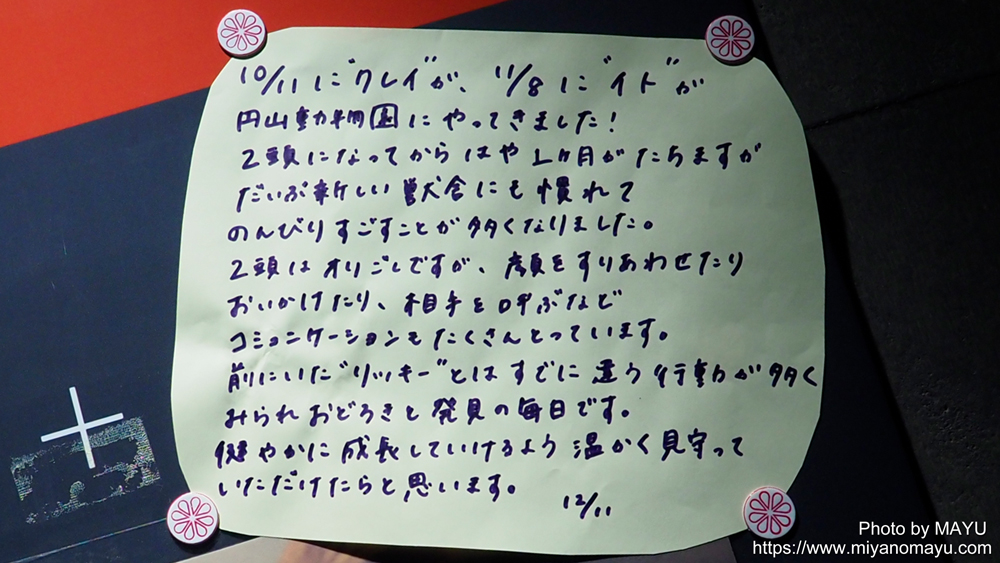 10/11に"クレイ"が、11/8に"イド"が
円山動物園にやってきました!
2頭になってからはや1ヶ月がたちますが
だいぶ新しい獣舎にも慣れて
のんびりすごすことが多くなりました。
2頭はオリごしですが、顔をすりあわせたり
おいかけたり、相手を呼ぶなど
コミュニケーションもたくさんとっています。
前にいた"リッキー"とはすでに違う行動が多く
みられおどろきと発見の毎日です。
健やかに成長していけるよう温かく見守って
いただけたらと思います。
12/11
Photo by MAYU
https://www.miyanomayu.com